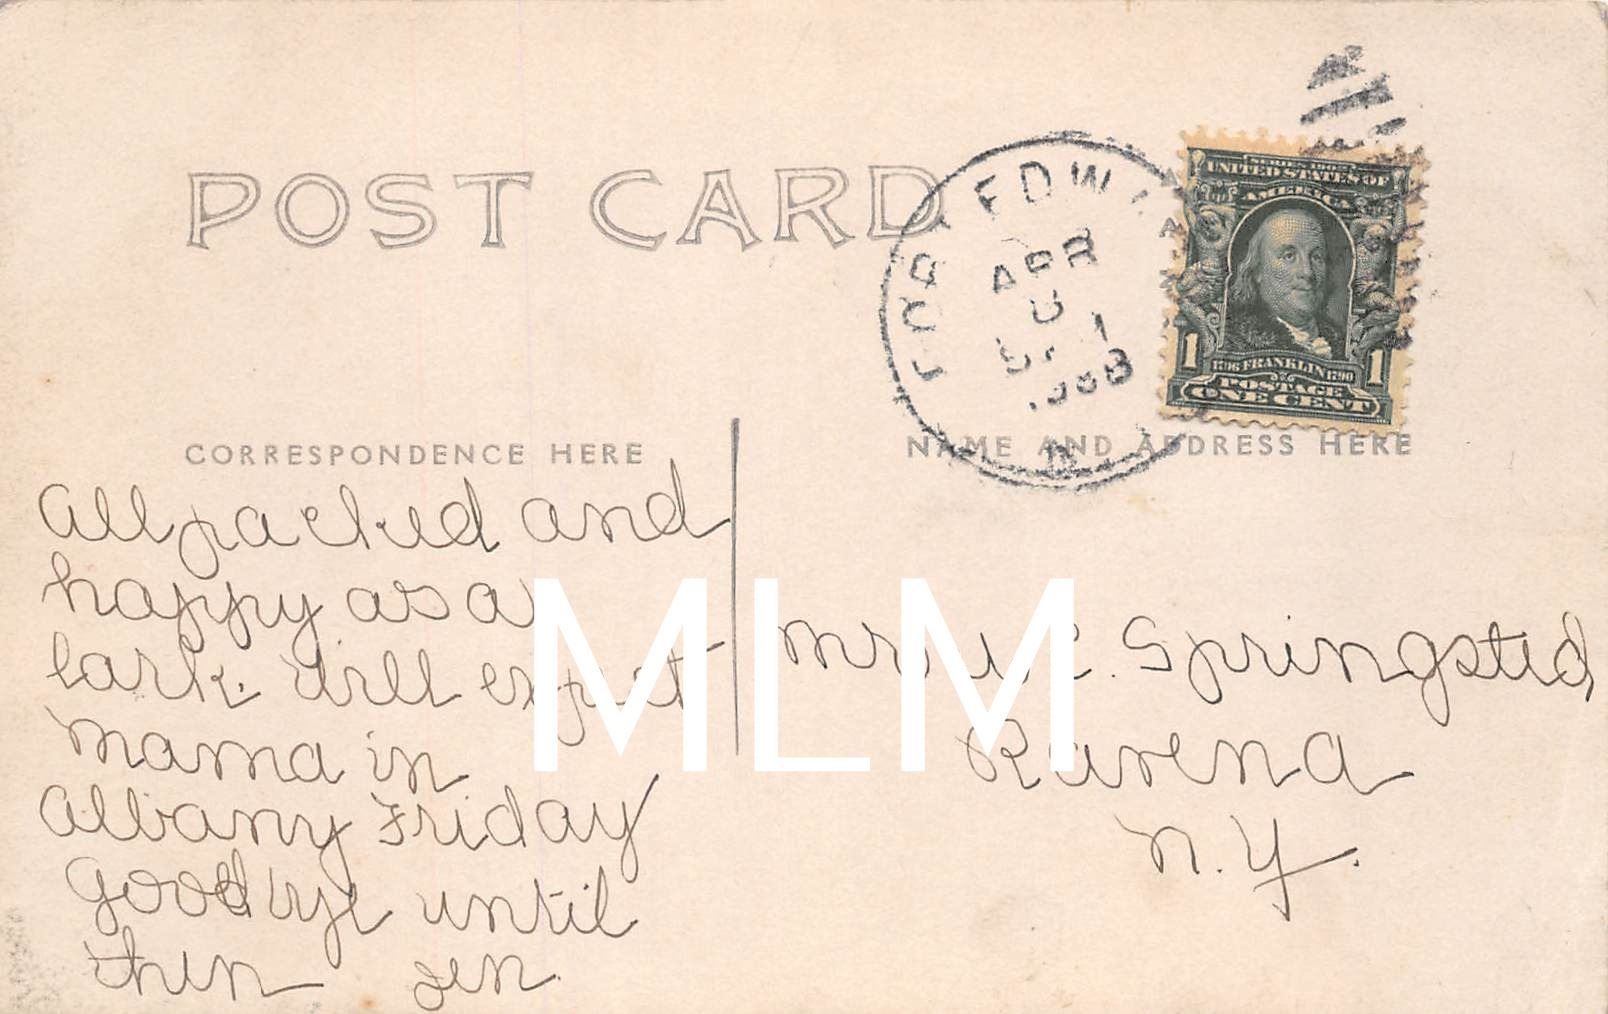 POST CARD
FORT EDWA
APR
1908
SERIES 1902
UNITED STATES OF
AMERICA
1 1
1706 FRANKLIN 1790
POSTAGE
ONE CENT
CORRESPONDENCE HERE
NAME AND ADDRESS HERE
All packed and
happy as a
lark. Will expect
mama in
Albany Friday
Goodbye until
then Jen.
Mrs W C. Springsted
Ravena
N.Y.
MLM